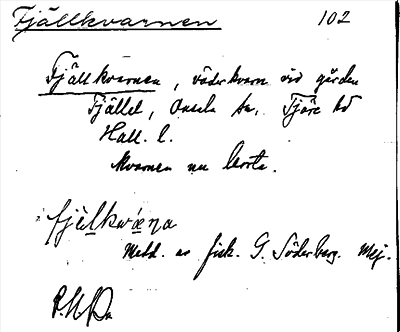 Fjällkvarnen 102
Fjällkvarnen, väderkvarn vid gården
Fjället, Onsala sn, Fjäre hd
Hall. l.
Kvarnen nu borta.
fjèlkwæ̀ṇa
Medd. av fisk. G. Söderberg. Mej.